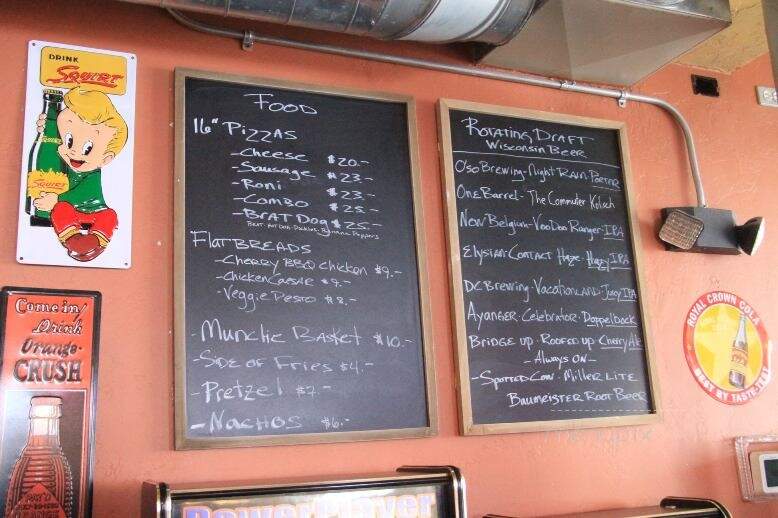 DRINK
SQUIRT
SQUIRT
Come in/
Drink
Orange-
CRUSH
FOOD
16" PIZZAS
-Cheese $20.-
-Sausage $23.-
-Roni $23.-
-Combo $25.-
-BRAT Dog $25.-
FlatBREADS
-Cherry BBQ Chicken $9.-
-Chicken Caesar $9.-
-Veggie Pesto $8.-
-Munchie Basket $10.-
-Side of Fries $4.-
-Pretzel $7.-
-Nachos $6.-
Rotating Draft
Wisconsin Beer
O'so Brewing-Night Rain-Porter
One Barrel-The Commuter Kolsch
New Belgium-VooDoo Ranger-IPA
Elysian-Contact Haze-Hazy IPA
DC Brewing-Vacationland-Juicy IPA
Ayanger-Celebrator-Doppelbock
Bridge Up-Roofed Up-Cherry Ale
-Always On-
-Spotted Cow-Miller Lite
Baumeister Root Beer
ROYAL CROWN COLA
BEST BY TASTE-TEST!
PowerPlayer